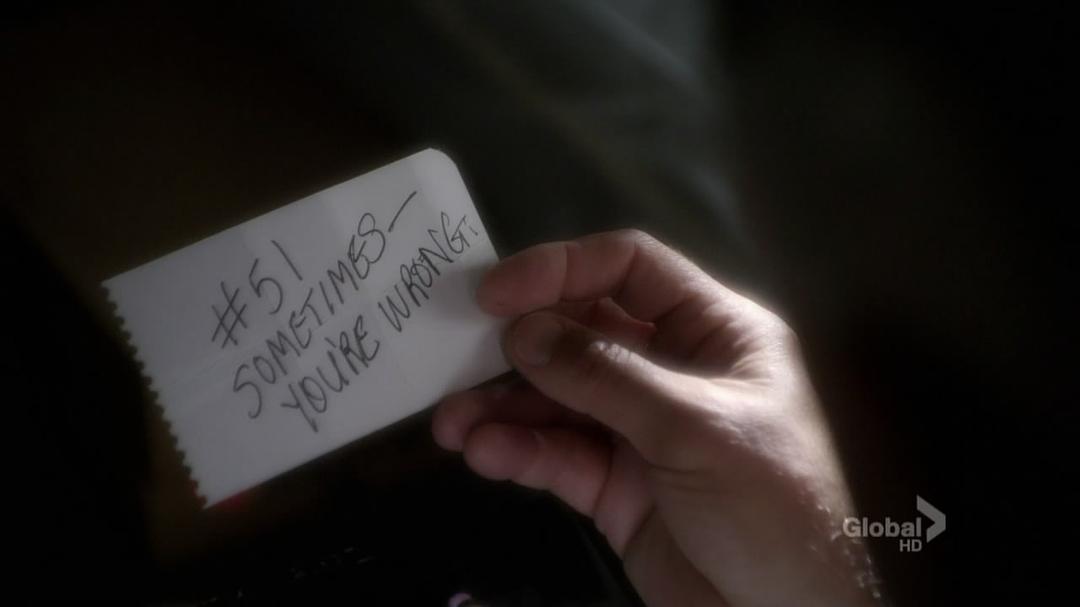 #51
SOMETIMES—
YOU'RE WRONG.
Global
HD